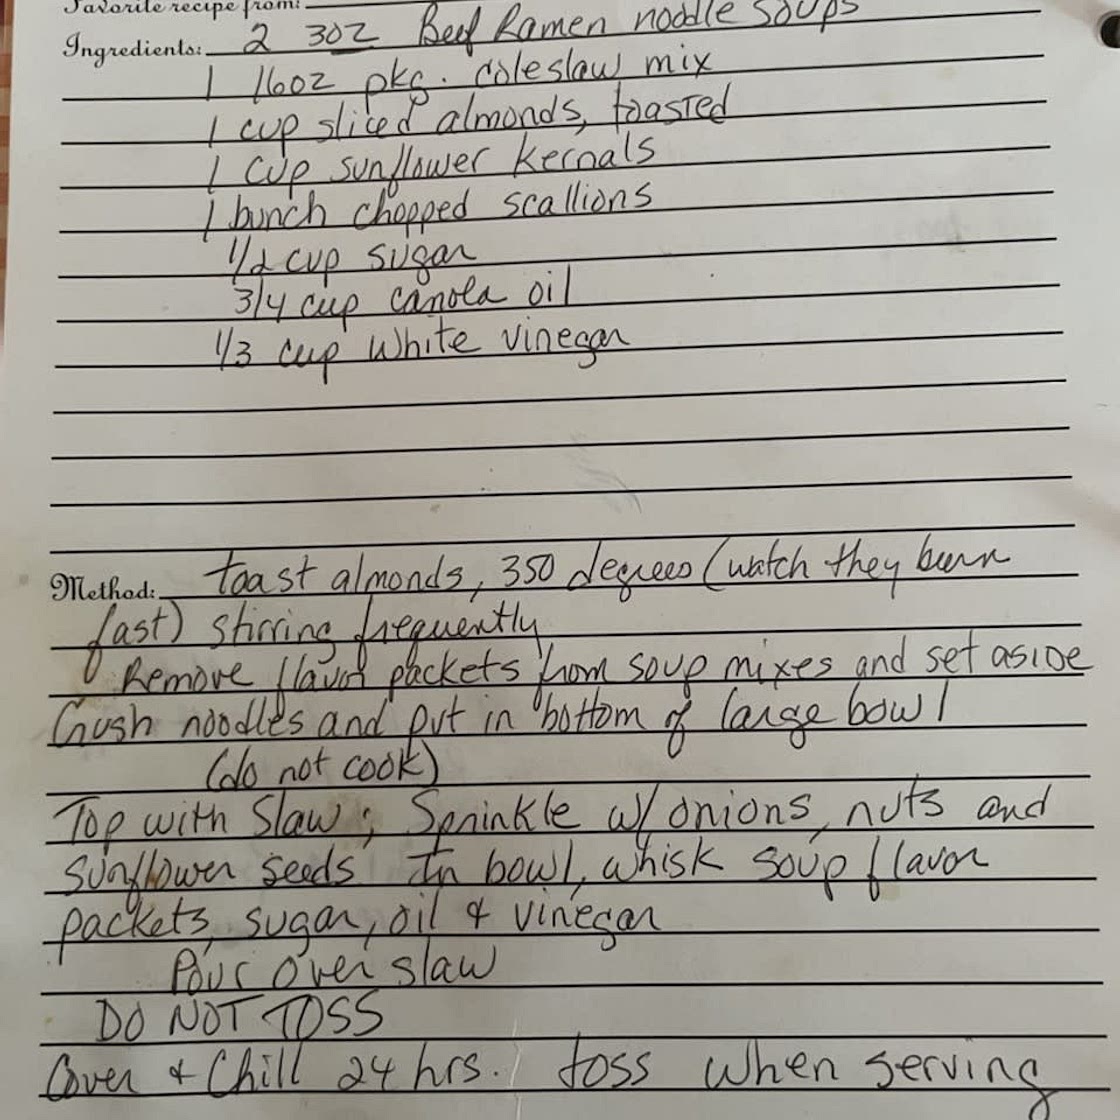 Favorite recipe from:
Ingredients: 2 3oz Beef Ramen noodle soups
1 16oz pkg. coleslaw mix
1 cup sliced almonds, toasted
1 cup sunflower kernals
1 bunch chopped scallions
1/2 cup sugar
3/4 cup canola oil
1/3 cup white vinegar
Method: toast almonds, 350 degrees (watch they burn
fast) stirring frequently
Remove flavor packets from soup mixes and set aside
Crush noodles and put in bottom of large bowl
(do not cook)
Top with Slaw; Sprinkle w/ onions, nuts and
sunflower seeds In bowl, whisk soup flavor
packets, sugar, oil & vinegar
Pour over slaw
DO NOT TOSS
Cover + Chill 24 hrs. toss when serving